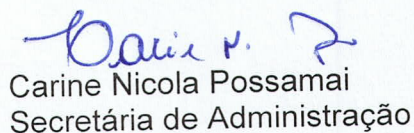 Carine N. P
Carine Nicola Possamai
Secretária de Administração